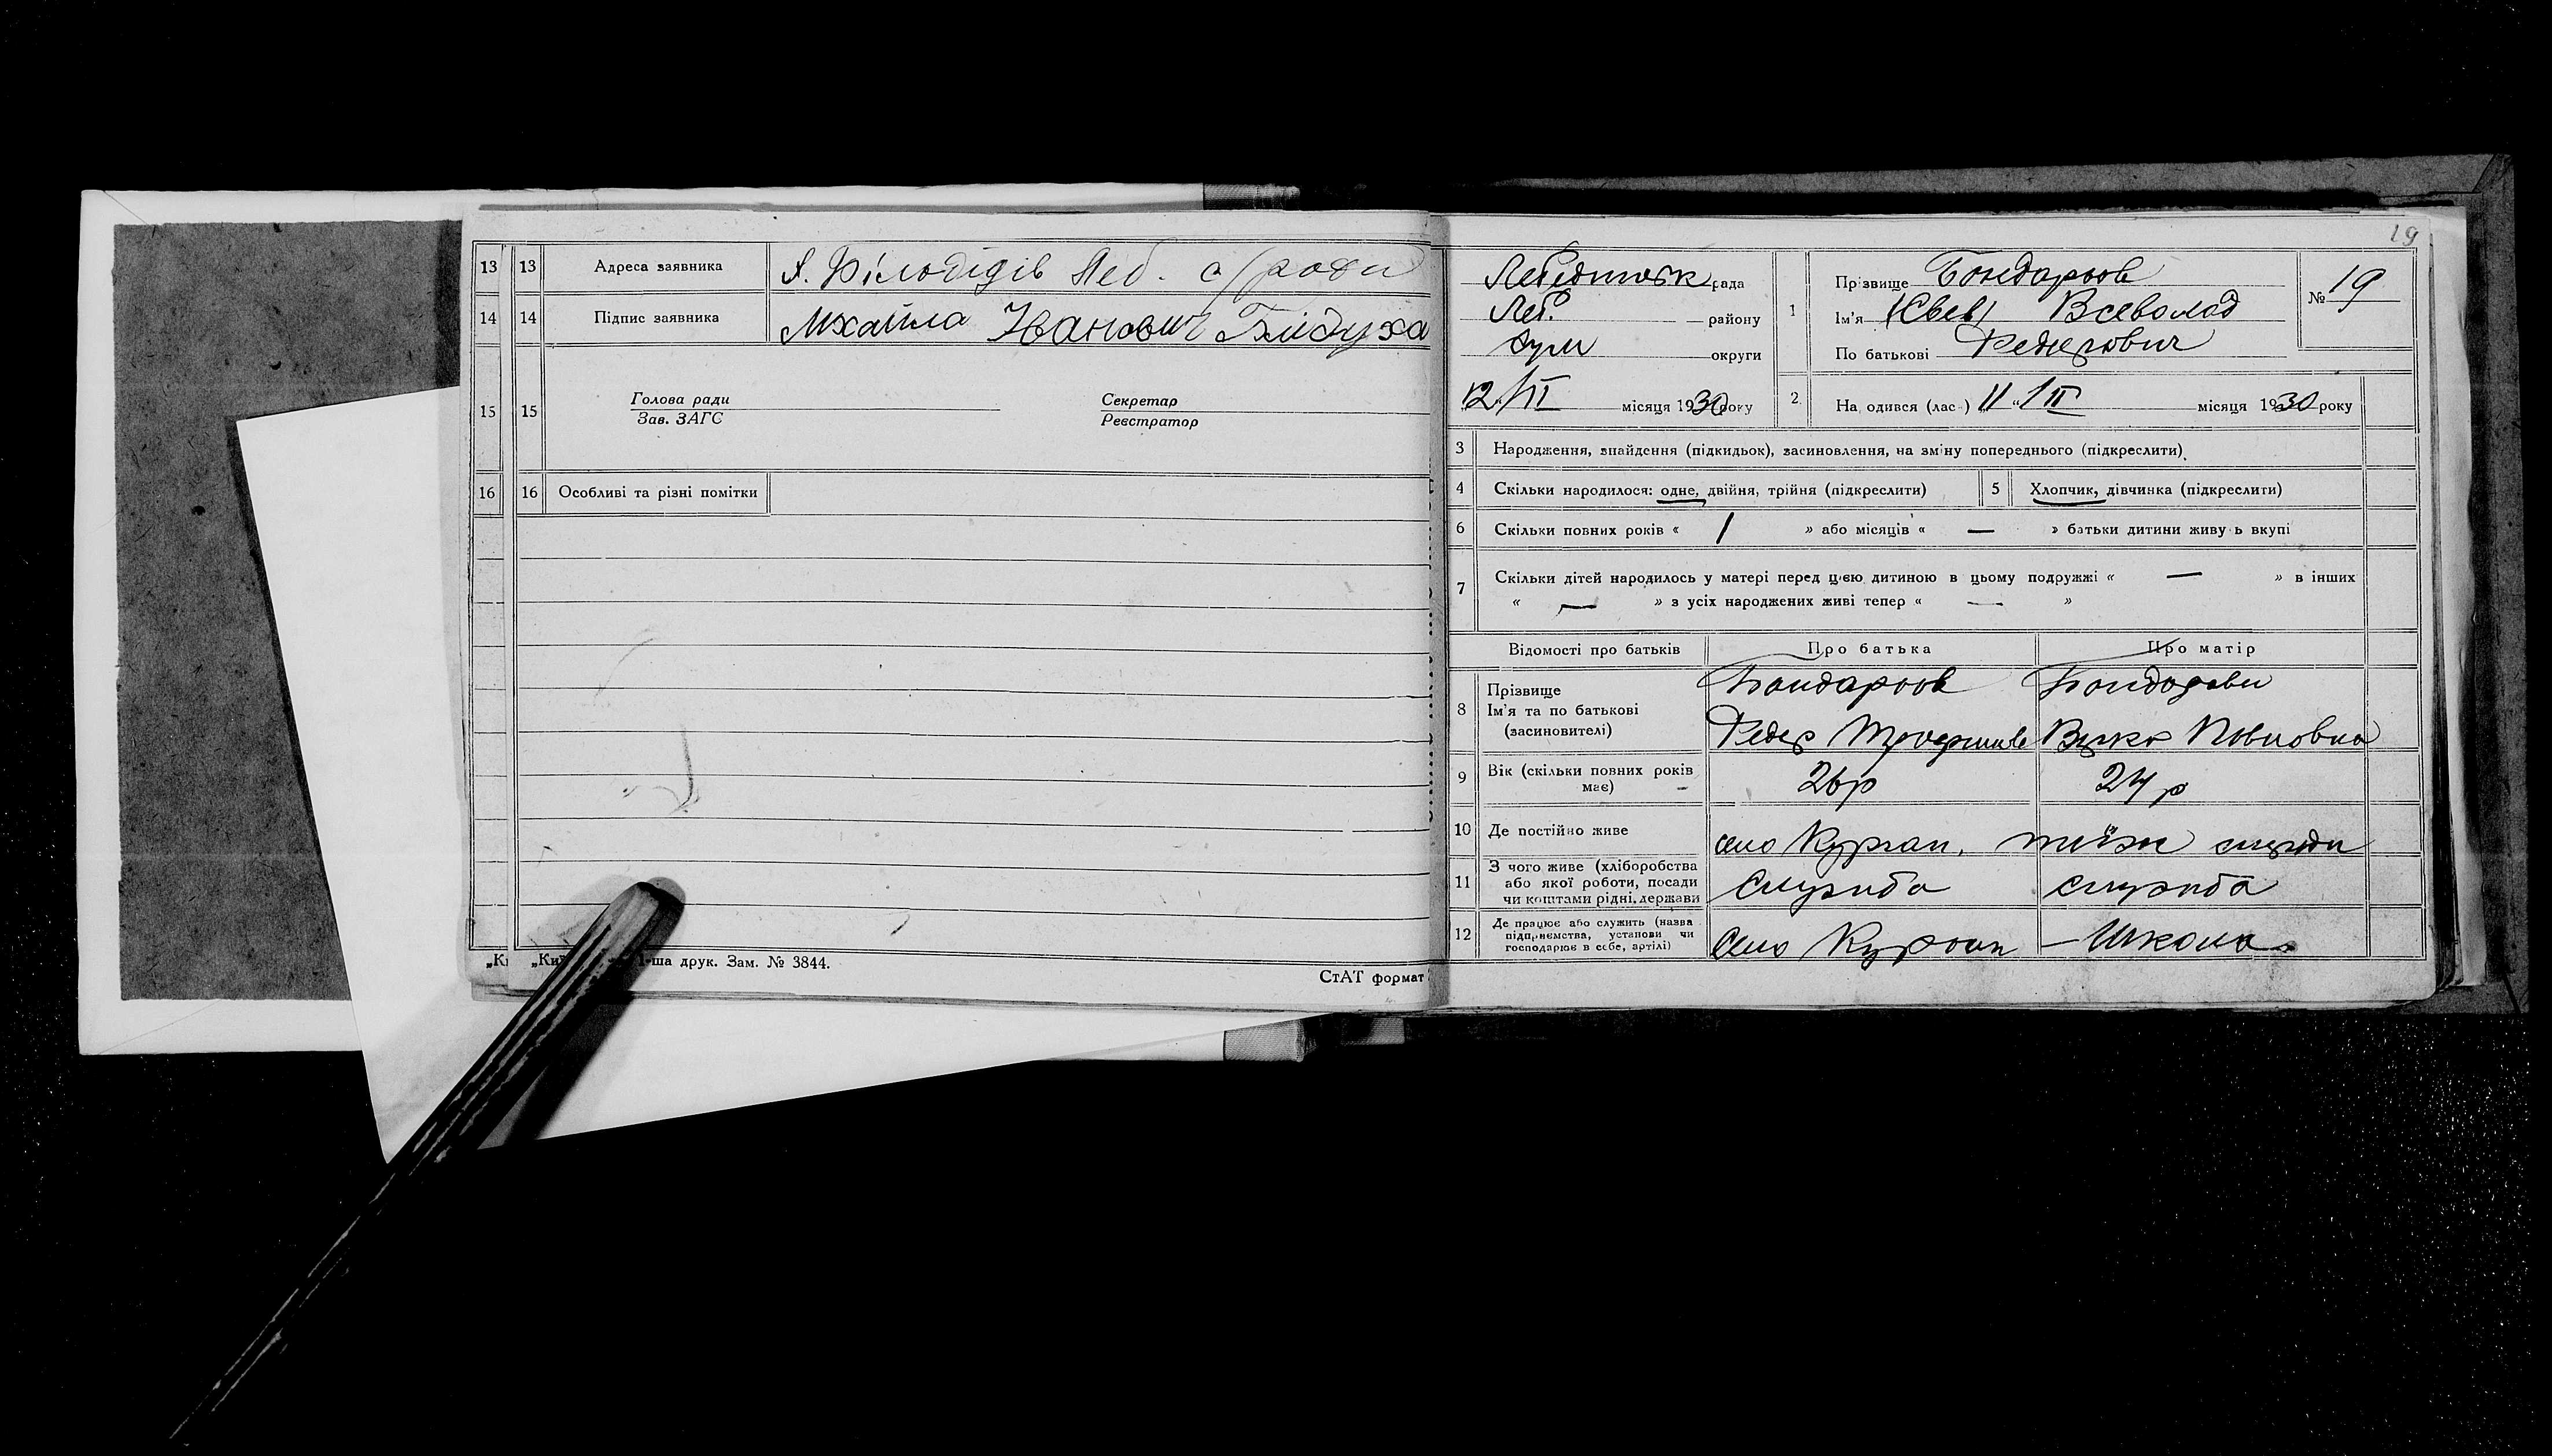 13 13 Адреса заявника х. Білодідів Леб. с/ради
14 14 Підпис заявника Михайла Іванович Блідуха
15 15 Голова ради Секретар
Зав. ЗАГС Реєстратор
16 16 Особливі та різні помітки
1-ша друк. Зам. № 3844.
СтАТ формат
19
рада
Леб. району
Сум округи
12/II місяця 1930 року
1 Прізвище Бондарьов
Ім'я Всеволод
По батькові Федорович
№ 19
2. На одився (лас ) 11 "/II місяця 1930 року
3 Народження, знайдення (підкидьок), засиновлення, на зміну попереднього (підкреслити).
4 Скільки народилося: одне, двійня, трійня (підкреслити) 5 Хлопчик, дівчинка (підкреслити)
6 Скільки повних років « 1 » або місяців « — » батьки дитини живу ь вкупі
7 Скільки дітей народилось у матері перед цією дитиною в цьому подружжі « — » в інших
« — » з усіх народжених живі тепер « — »
Відомості про батьків Про батька Про матір
8 Прізвище Бондарьов
Ім'я та по батькові
(засиновителі) Федор Павловна
9 Вік (скільки повних років 26 р 24 р
має)
10 Де постійно живе село Курган,
11 З чого живе (хліборобства
або якої роботи, посади служба служба
чи коштами рідні, держави
12 Де працює або служить (назва
підприємства, установи чи село Курган — Школа
господарює в себе, артілі)